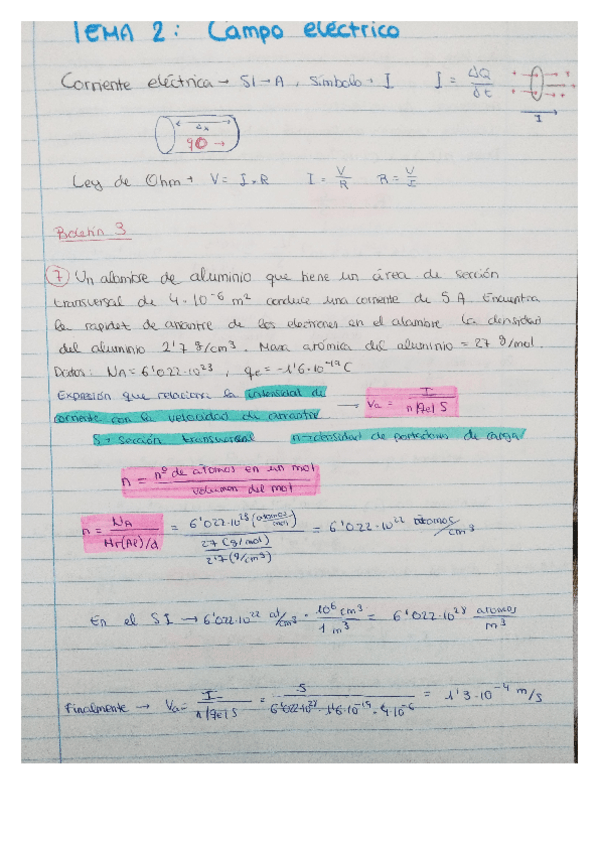 TEMA 2: Campo eléctrico
Corriente eléctrica → SI → A, Símbolo → I I = ΔQ/Δt
Δx
q
I
Ley de Ohm → V = I × R I = V/R R = V/I
Boletín 3
7 Un alambre de aluminio que tiene un área de sección
transversal de 4·10⁻⁶ m² conduce una corriente de 5 A. Encuentra
la rapidez de arrastre de los electrones en el alambre. La densidad
del aluminio 2'7 g/cm³. Masa atómica del aluminio = 27 g/mol.
Datos: NA = 6'022·10²³, qe = -1'6·10⁻¹⁹ C
Expresión que relaciona la intensidad de
corriente con la velocidad de arrastre → Va = I / n|qe| S
S → sección transversal n → densidad de portadores de carga
n = nº de átomos en un mol / volumen del mol
n = NA / Mr(Al)/d = 6'022·10²³ (átomos/mol) / 27 (g/mol) / 2'7 (g/cm³) = 6'022·10²² átomos/cm³
En el SI → 6'022·10²² at/cm³ · 10⁶ cm³ / 1 m³ = 6'022·10²⁸ átomos/m³
Finalmente → Va = I / n|qe| S = 5 / 6'022·10²⁸ · 1'6·10⁻¹⁹ · 4·10⁻⁶ = 1'3·10⁻⁴ m/s